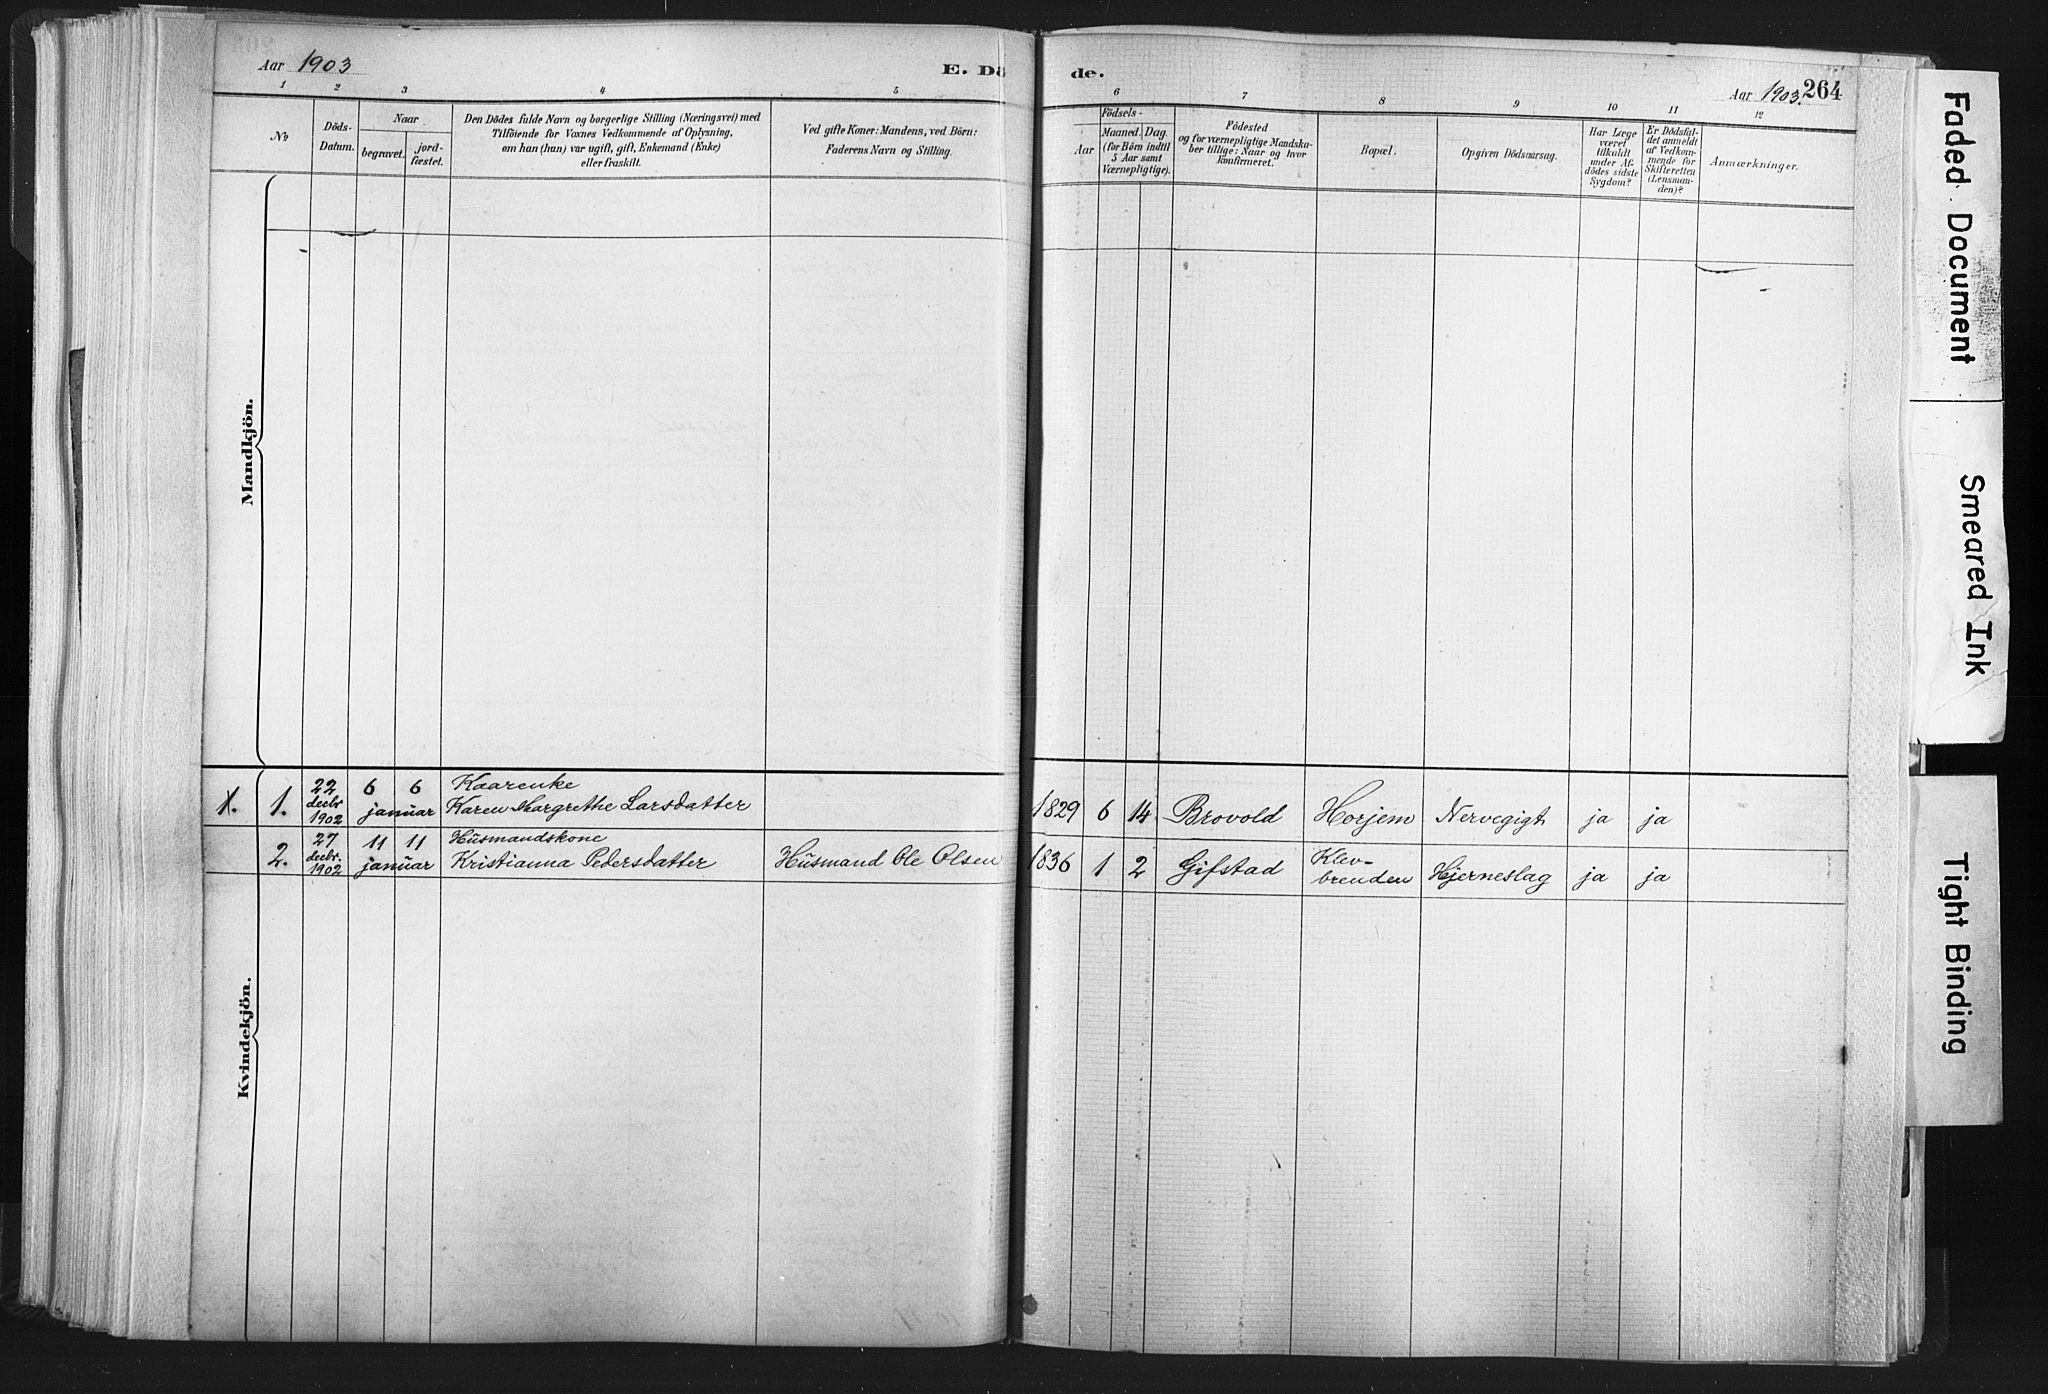 Aar 1903
E. Dö
de.
Aar 1903.
264
1 2 3 4 5
6 7 8 9 10 11 12
No
Döds-
Datum.
Naar
begravet.
jord-
fæstet.
Den Dödes fulde Navn og borgerlige Stilling (Næringsvei) med
Tilföiende for Voxnes Vedkommende af Oplysning,
om han (hun) var ugift, gift, Enkemand (Enke)
eller fraskilt.
Ved gifte Koner: Mandens, ved Börn:
Faderens Navn og Stilling.
Födsels-
Aar
Maaned. Dag.
(for Börn indtil
5 Aar samt
Værnepligtige).
Födested
og for værnepligtige Mandska-
ber tillige: Naar og hvor
konfirmeret.
Bopæl.
Opgiven Dödsaarsag.
Har Læge
været
tilkaldt
under Af-
dödes sidste
Sygdom?
Er Dödsfal-
det anmeldt
af Vedkom-
mende for
Skifteretten
(Lensman-
den)?
Anmærkninger.
Mandkjön.
Kvindekjön.
1. 1. 22 decbr 1902 6 januar 6 Kaarenke
Karen Margrethe Larsdatter 1829 6 14 Brovold Horjem Nervegigt ja ja
2. 27 decbr. 1902 11 januar 11 Husmandskone
Kristianna Pedersdatter Husmand Ole Olsen 1836 1 2 Gifstad Klev-
brenden Hjerneslag ja ja
Faded Document
Smeared Ink
Tight Binding